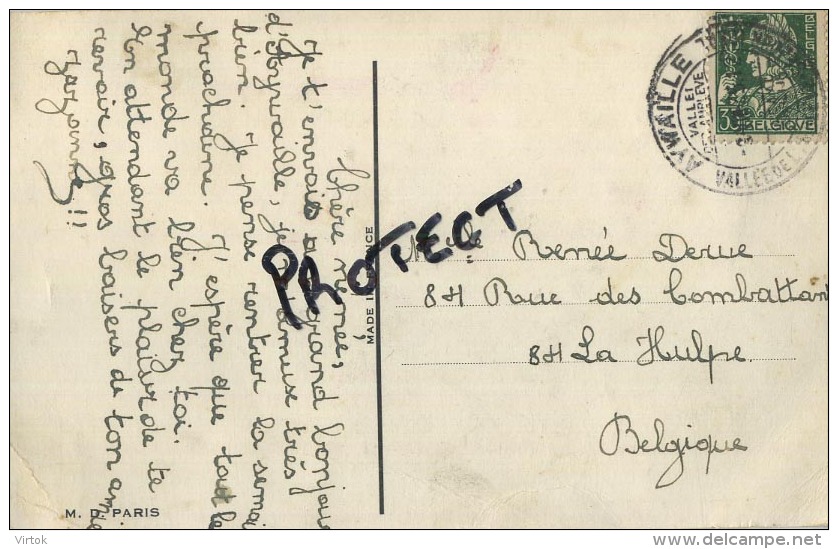 Chère renée,
Je t'envois un grand bonjour
d'Aywaille, je m'amuse très
bien. Je pense rentrer la semai
prochaine. J'espère que tout le
monde va bien chez toi.
En attendant le plaisir de te
revoir, gros baisers de ton amie
!!
M. D. PARIS
MADE IN FRANCE
PROTECT
Melle Renée Derue
84 Rue des Combattant
84 La Hulpe
Belgique
AYWAILLE
VALLEE DE L
BELGIQUE
BELGIE
Virtok
delcampe.net